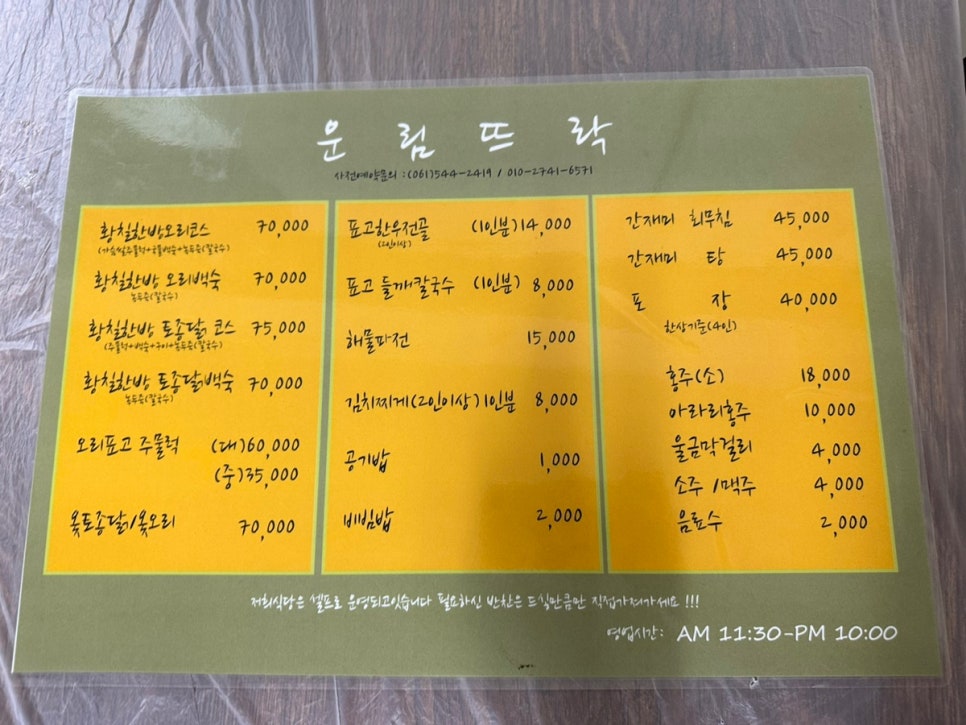 운 림 뜨 락
사전예약문의 : (061)544-2419 / 010-2741-6571
황칠한방오리코스 70,000
(가슴살주물럭+국물백숙+녹두죽(칼국수)
황칠한방 오리백숙 70,000
녹두죽(칼국수)
황칠한방 토종닭 코스 75,000
(주물럭+백숙+구이+녹두죽(칼국수)
황칠한방 토종닭백숙 70,000
녹두죽(칼국수)
오리표고 주물럭 (대)60,000
(중)35,000
옻토종닭/옻오리 70,000
표고한우전골 (1인분)14,000
(2인이상)
표고 들깨칼국수 (1인분) 8,000
해물파전 15,000
김치찌게(2인이상)1인분 8,000
공기밥 1,000
비빔밥 2,000
간재미 회무침 45,000
간재미 탕 45,000
포 장 40,000
한상기준(4인)
홍주(소) 18,000
아라리홍주 10,000
울금막걸리 4,000
소주 /맥주 4,000
음료수 2,000
저희식당은 셀프로 운영되고있습니다 필요하신 반찬은 드실만큼만 직접가져가세요 !!!
영업시간: AM 11:30-PM 10:00